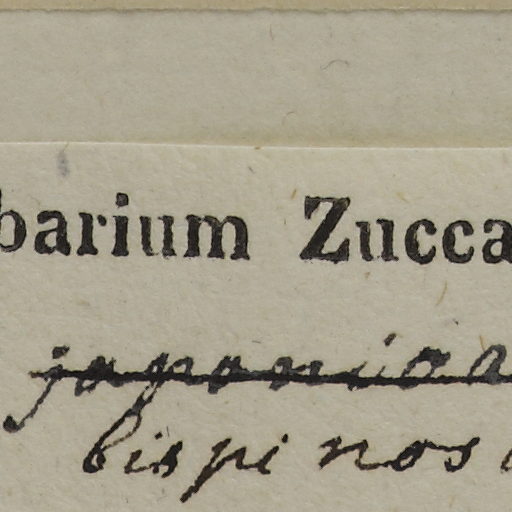 barium Zucca
japonica
bispinos